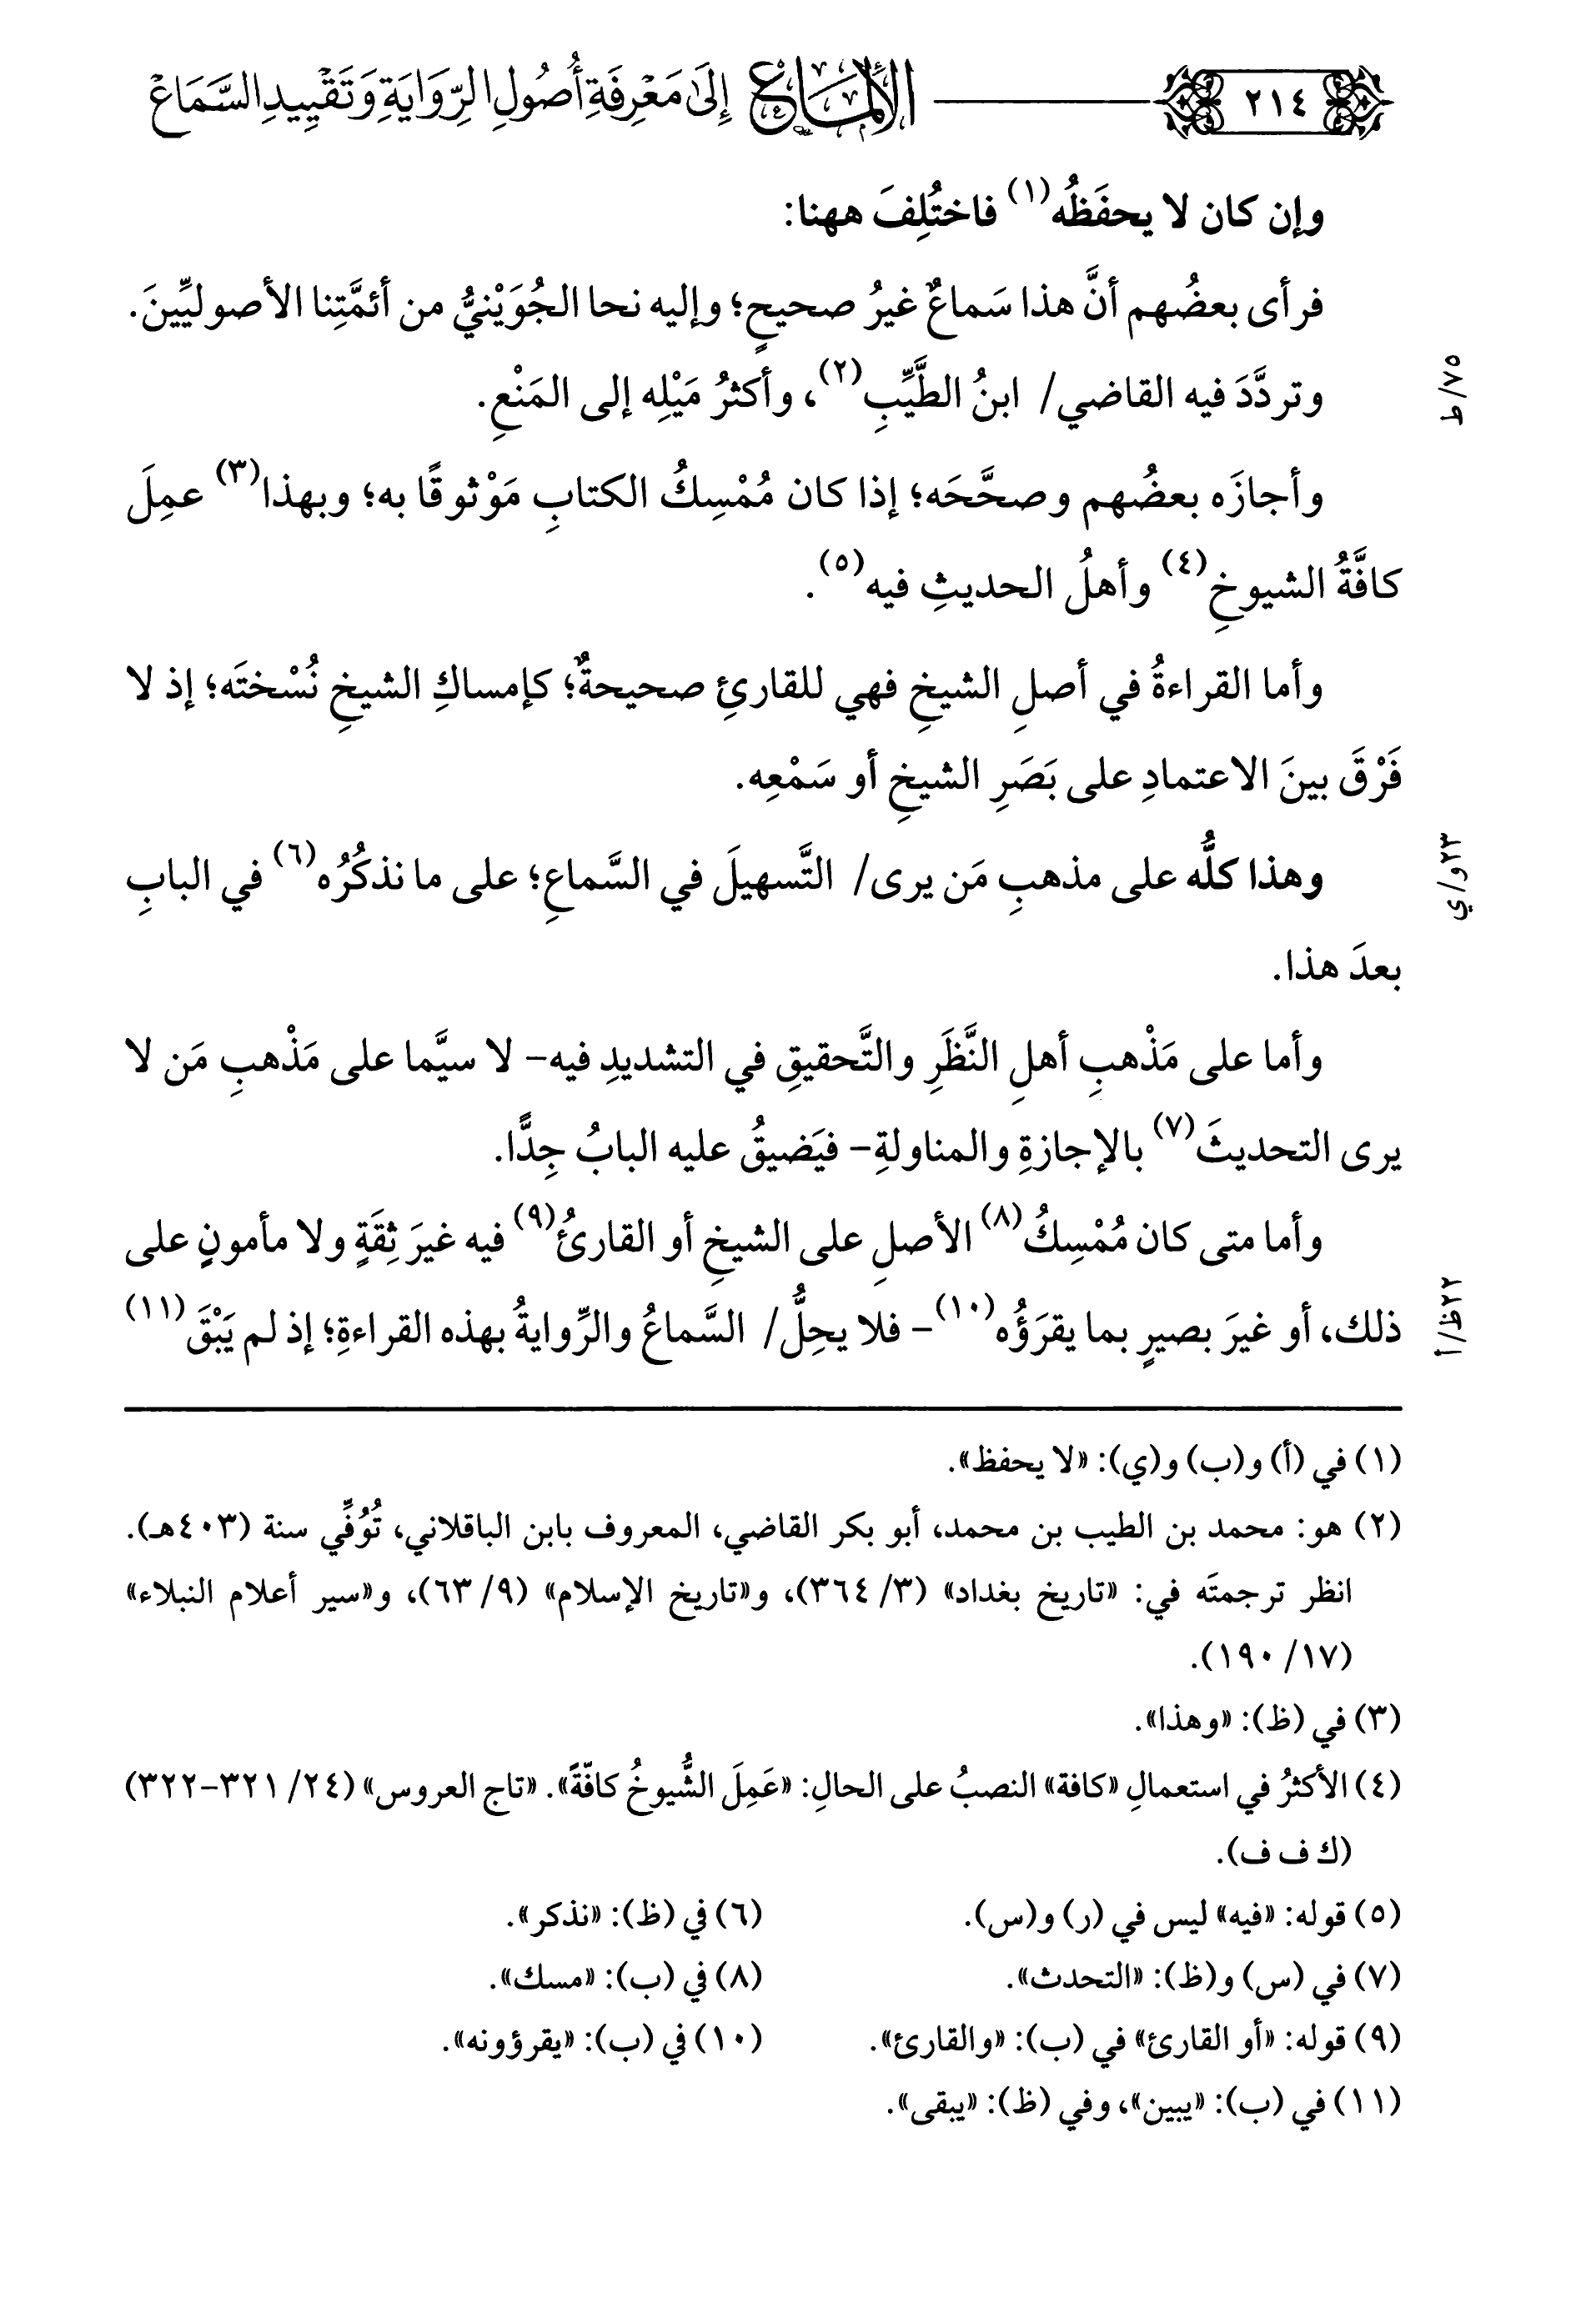 ٢١٤ الإلماع إِلَى مَعْرِفَةِ أُصُولِ الرِّوَايَةِ وَتَقْيِيدِ السَّمَاعْ
وإن كان لا يحفَظُه(١) فاختُلِفَ ههنا:
فرأى بعضُهم أنَّ هذا سَماعٌ غيرُ صحيحٍ؛ وإليه نحا الجُوَيْنيُّ من أئمَّتِنا الأصوليِّينَ.
وتردَّدَ فيه القاضي/ ابنُ الطَّيِّبِ(٢)، وأكثرُ مَيْلِه إلى المَنْعِ.
٧٥/ط
وأجازَه بعضُهم وصحَّحَه؛ إذا كان مُمْسِكُ الكتابِ مَوْثوقًا به؛ وبهذا(٣) عمِلَ
كافَّةُ الشيوخِ(٤) وأهلُ الحديثِ فيه(٥).
وأما القراءةُ في أصلِ الشيخِ فهي للقارئِ صحيحةٌ؛ كإمساكِ الشيخِ نُسْختَه؛ إذ لا
فَرْقَ بينَ الاعتمادِ على بَصَرِ الشيخِ أو سَمْعِه.
وهذا كلُّه على مذهبِ مَن يرى/ التَّسهيلَ في السَّماعِ؛ على ما نذكُرُه(٦) في البابِ
٢٣و/ي
بعدَ هذا.
وأما على مَذْهبِ أهلِ النَّظَرِ والتَّحقيقِ في التشديدِ فيه- لا سيَّما على مَذْهبِ مَن لا
يرى التحديثَ(٧) بالإجازةِ والمناولةِ- فيَضيقُ عليه البابُ جِدًّا.
وأما متى كان مُمْسِكُ(٨) الأصلِ على الشيخِ أو القارئُ(٩) فيه غيرَ ثِقَةٍ ولا مأمونٍ على
ذلك، أو غيرَ بصيرٍ بما يقرَؤُه(١٠)- فلا يحِلُّ/ السَّماعُ والرِّوايةُ بهذه القراءةِ؛ إذ لم يَبْقَ(١١)
٢٢ظ/أ
(١) في (أ) و(ب) و(ي): «لا يحفظ».
(٢) هو: محمد بن الطيب بن محمد، أبو بكر القاضي، المعروف بابن الباقلاني، تُوُفِّي سنة (٤٠٣هـ).
انظر ترجمتَه في: «تاريخ بغداد» (٣/ ٣٦٤)، و«تاريخ الإسلام» (٩/ ٦٣)، و«سير أعلام النبلاء»
(١٧/ ١٩٠).
(٣) في (ظ): «وهذا».
(٤) الأكثرُ في استعمالِ «كافة» النصبُ على الحالِ: «عَمِلَ الشُّيوخُ كافّةً». «تاج العروس» (٢٤/ ٣٢١-٣٢٢)
(ك ف ف).
(٥) قوله: «فيه» ليس في (ر) و(س). (٦) في (ظ): «نذكر».
(٧) في (س) و(ظ): «التحدث». (٨) في (ب): «مسك».
(٩) قوله: «أو القارئ» في (ب): «والقارئ». (١٠) في (ب): «يقرؤونه».
(١١) في (ب): «يبين»، وفي (ظ): «يبقى».